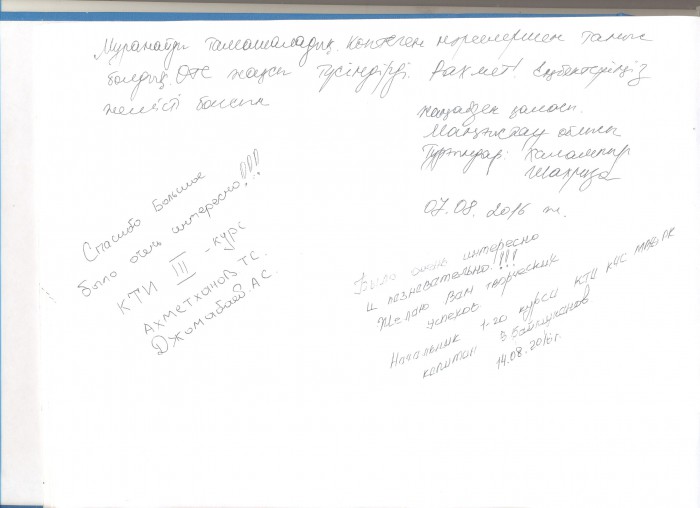 Мұражайды тамашаладық. Көптеген нәрселермен таныс
болдық. Өте жақсы түсіндірді. Рахмет! Еңбектеріңіз
жемісті болсын
Жаңаөзен қаласы.
Маңғыстау облысы
Туристер: Калампыр
Шахриза
07.08. 2016 ж.
Спасибо большое
было очень интересно!!!
КТИ III - курс
Ахметханов Т.С.
Джомабаев А.С.
Было очень интересно
и познавательно!!!!
Желаю Вам творческих
успехов.
Начальник 1-го курса КТИ КЧС МВД РК
капитан Э Баймуханов
14.08.2016г.